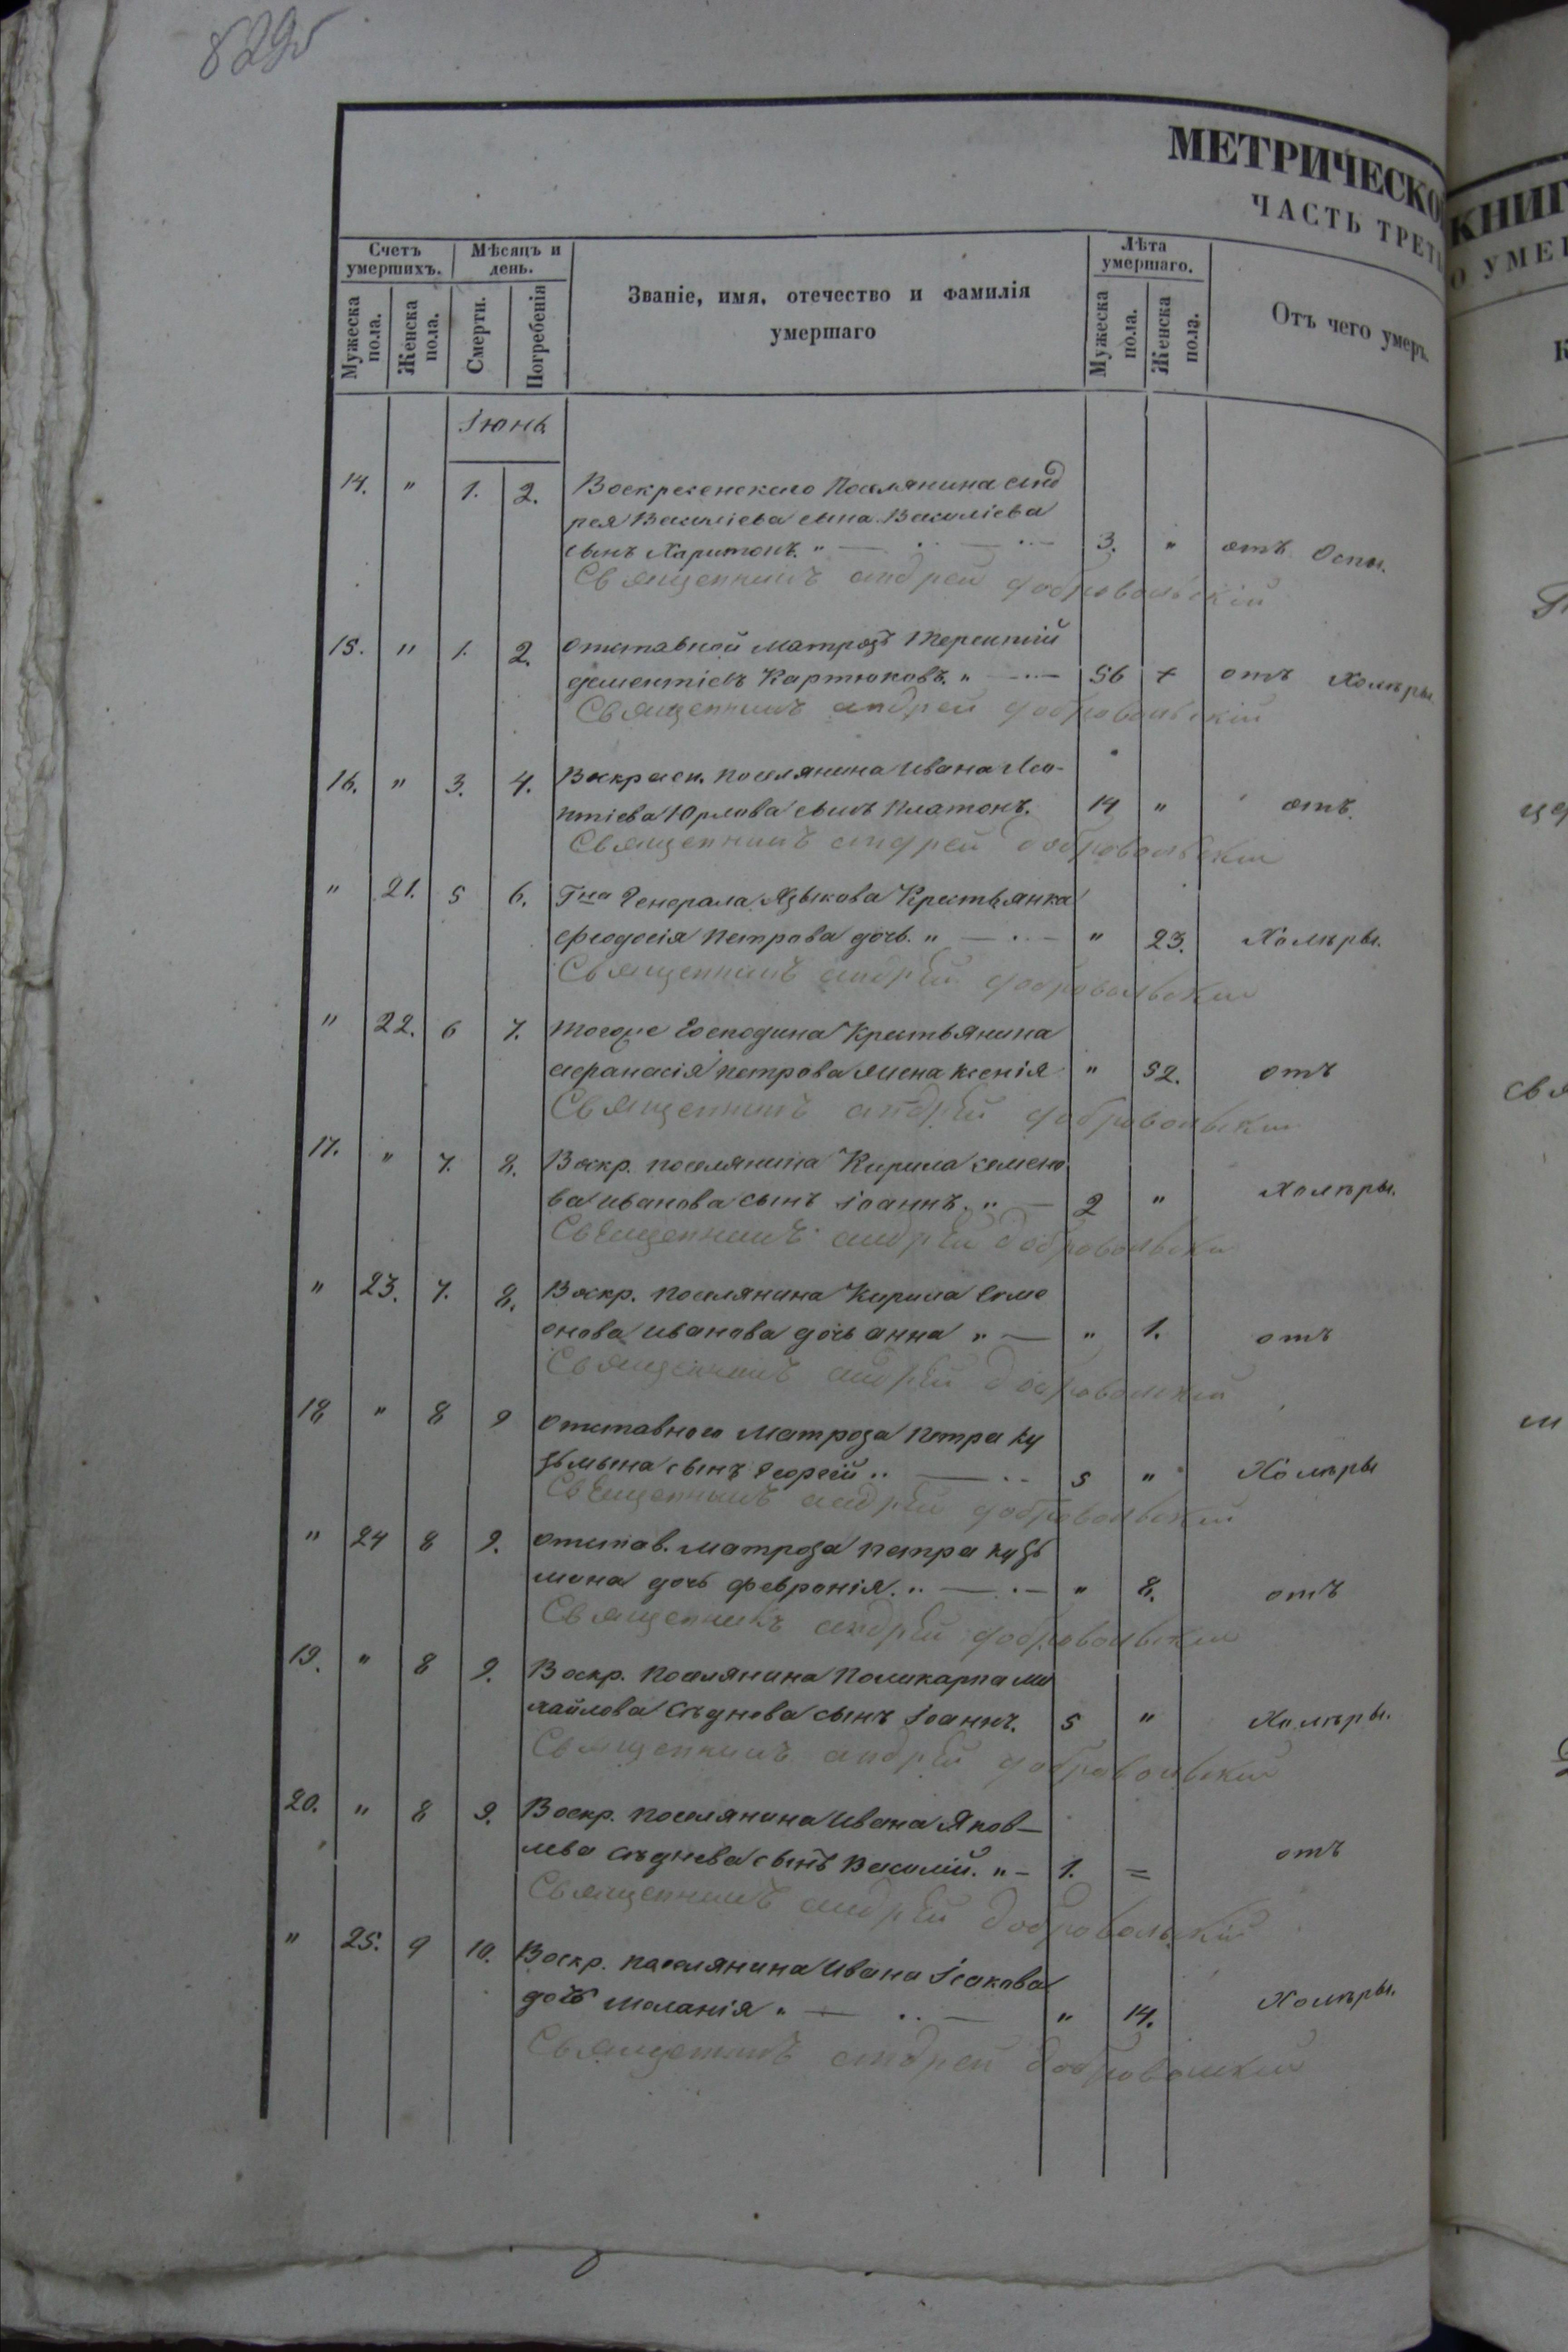 829об
МЕТРИЧЕСКО
ЧАСТЬ ТРЕТЬ
КНИГ
О УМЕР
Счетъ умершихъ.
Мѣсяцъ и день.
Званіе, имя, отечество и фамилія умершаго
Лѣта умершаго.
Отъ чего умеръ.
Мужеска пола.
Женска пола.
Смерти.
Погребенія
Мужеска пола.
Женска пола.
Іюнь
14. " 1. 2. Воскресенскаго Поселянина Анд
рея Василіева сына Василіева
сынъ Харитонъ. " 3. " отъ Оспы.
Священникъ Андрей Добровольскій
15. " 1. 2. Отставной матрозъ Терентій
Дементіевъ Картюковъ. " 56 + отъ Холеры
Священникъ Андрей Добровольскій
16. " 3. 4. Воскресен. поселянина Ивана Лео-
нтіева Юрлова сынъ Платонъ. 14 " отъ
Священникъ Андрей Добровольскій
" 21. 5 6. Гна Генерала Языкова Крестьянка
Феодосія Петрова дочь. " " 23. Холеры.
Священникъ Андрей Добровольскій
" 22. 6 7. Тогоже Господина Крестьянина
Афанасія Петрова жена Ксенія " 52. отъ
Священникъ Андрей Добровольскій
17. " 7. 8. Воскр. поселянина Кирила Семено
ва Иванова сынъ Іоаннъ. " 2 " Холеры.
Священникъ Андрей Добровольскій
" 23. 7. 8. Воскр. поселянина Кирила Семе
онова Иванова дочь Анна " " 1. отъ
Священникъ Андрей Добровольскій
18 " 8 9 Отставнаго Матроза Петра Ку
зьмина сынъ Георгій " 5 " Холеры
Священникъ Андрей Добровольскій
" 24 8 9. Отстав. матроза Петра Кузь
мина дочь Февронія. " " 8. отъ
Священникъ Андрей Добровольскій
19. " 8 9. Воскр. поселянина Поликарпа Ми
хайлова Съднева сынъ Іоаннъ. 5 " Холеры.
Священникъ Андрей Добровольскій
20. " 8 9. Воскр. поселянина Ивана Яков-
лева Съднева сынъ Василій. " 1. = отъ
Священникъ Андрей Добровольскій
" 25. 9 10. Воскр. поселянина Ивана Ісакова
дочь Меланія " " 14. Холеры.
Священникъ Андрей Добровольскій